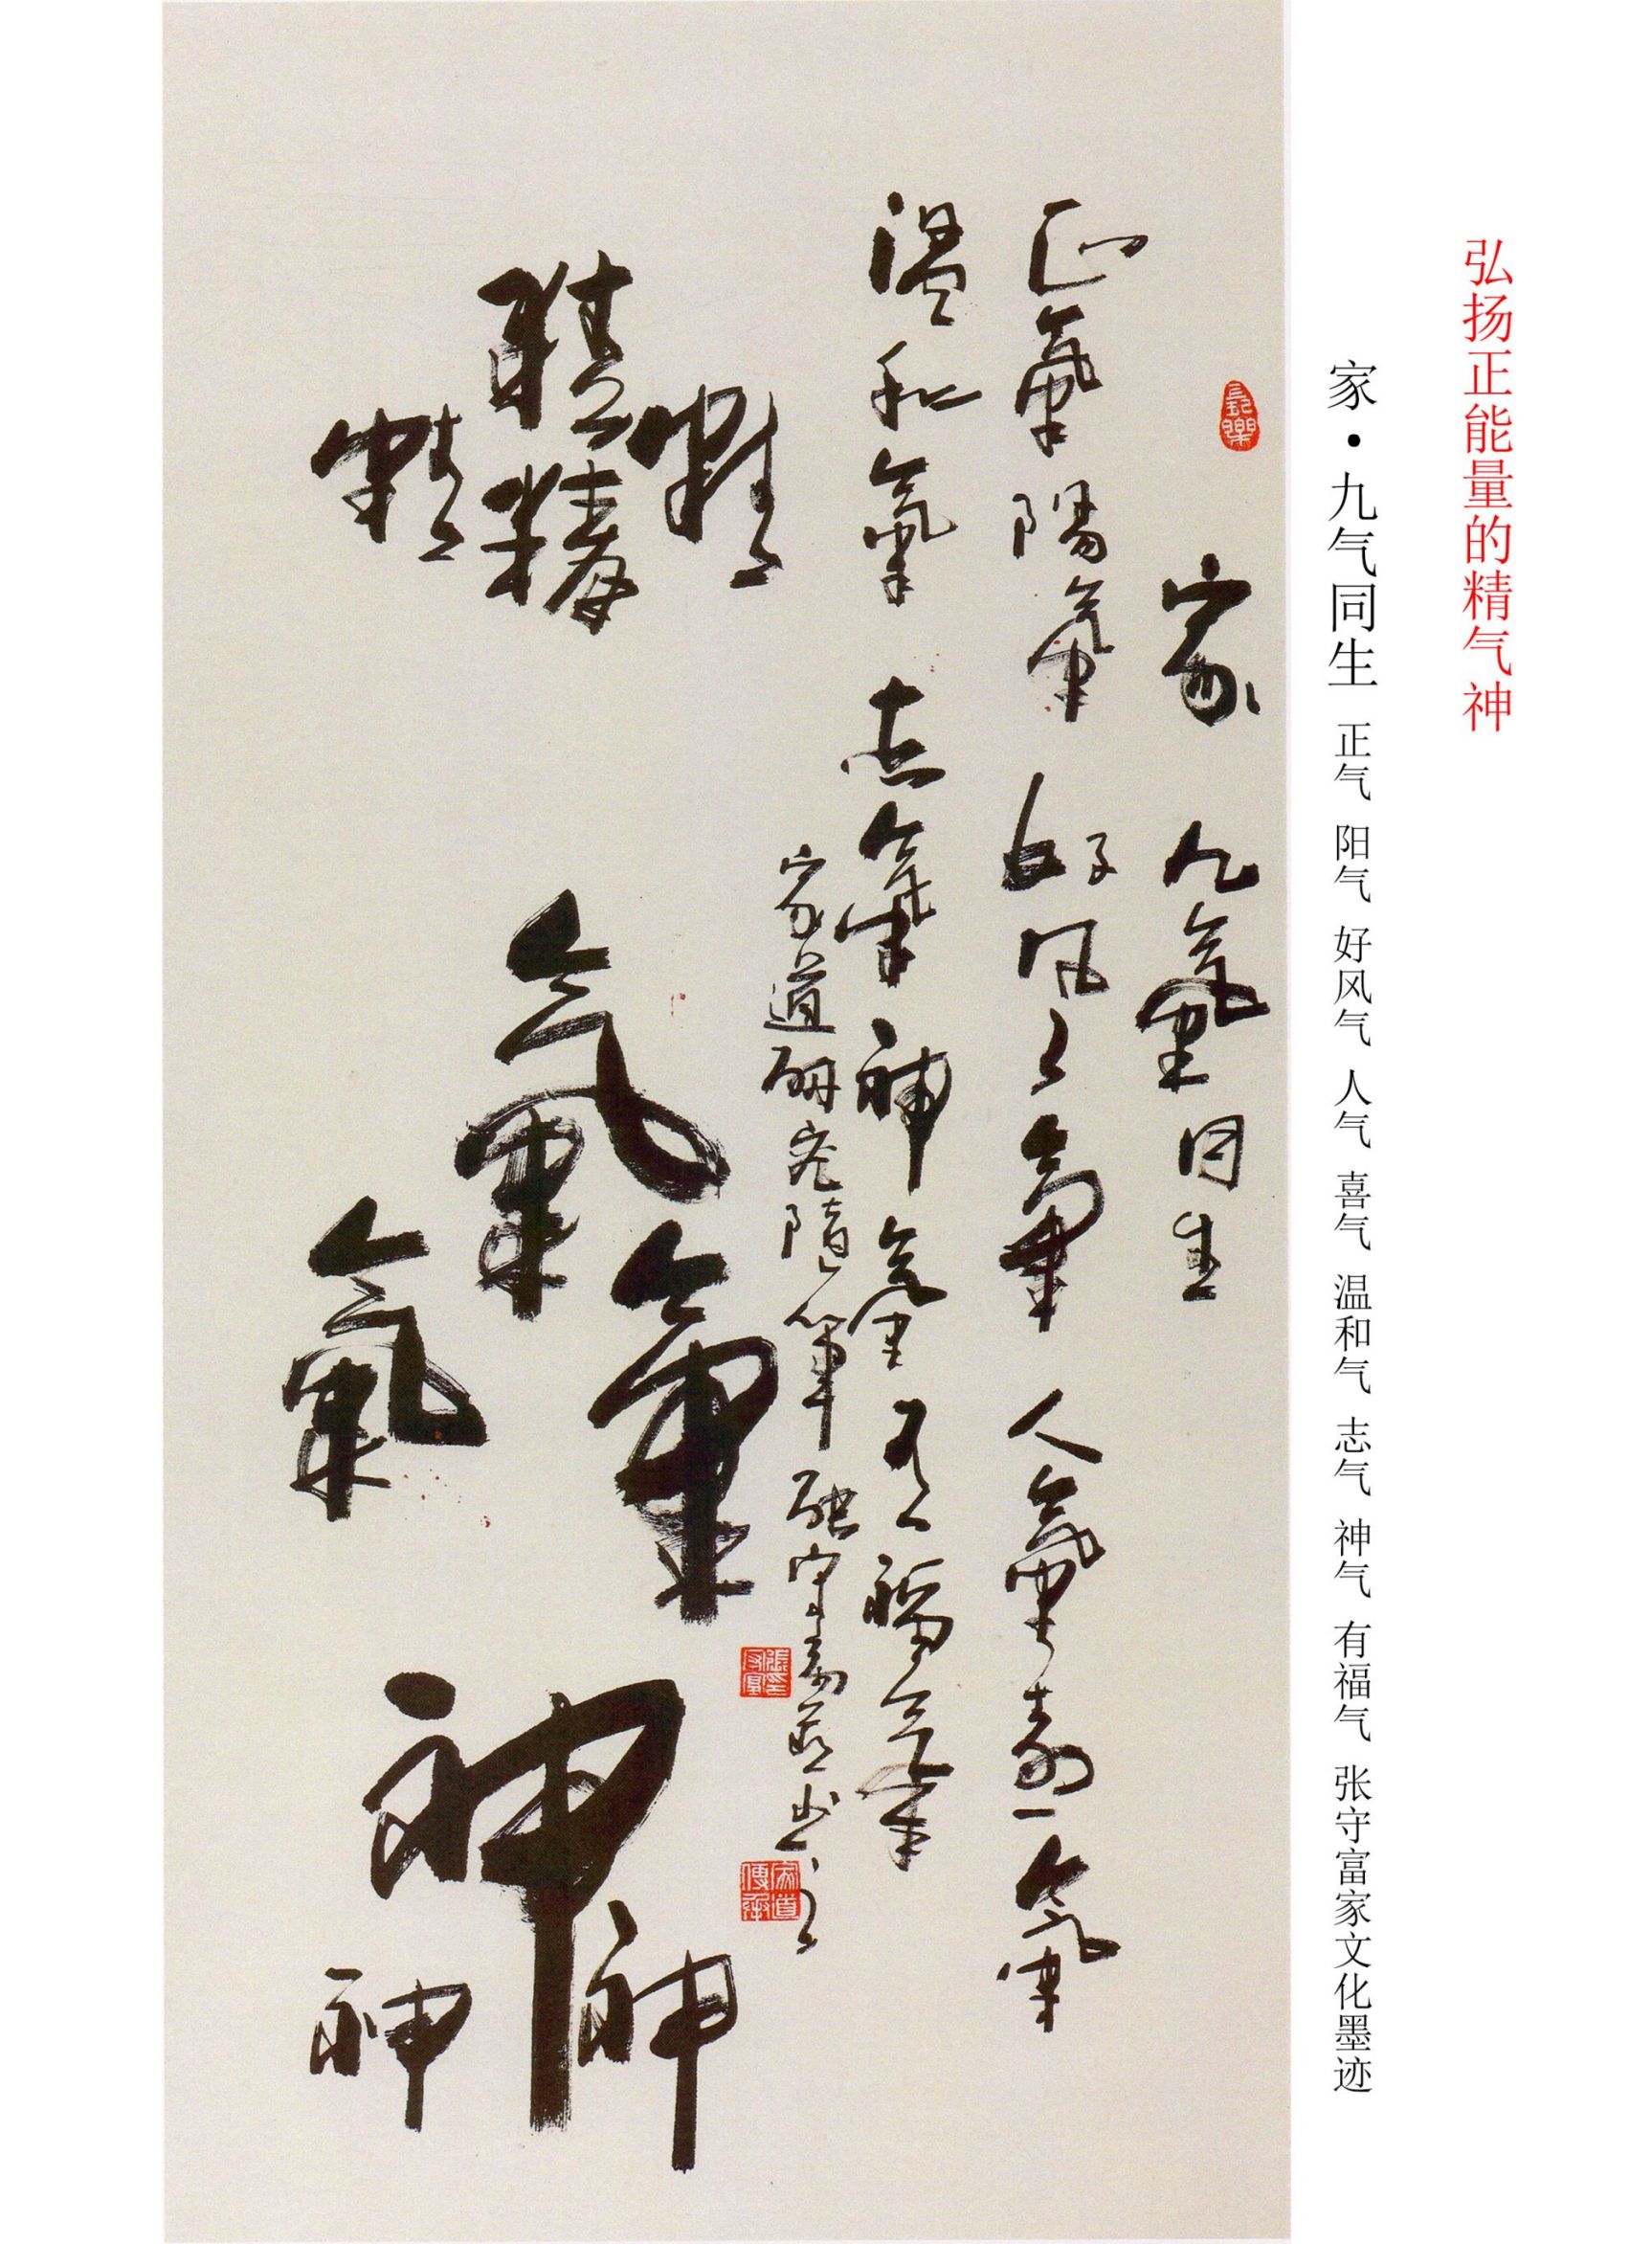 弘扬正能量的精气神
家·九气同生 正气 阳气 好风气 人气 喜气 温和气 志气 神气 有福气 张守富家文化墨迹
家 九氣同生
正氣陽氣 好风之氣 人氣 喜氣
温和氣 志氣 神氣 有福氣
家道研究随筆 張守富
精精精精
氣氣氣
神神神